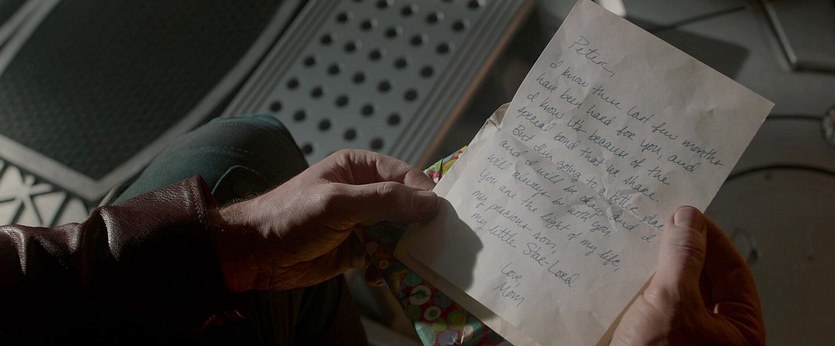 Peter,
I know these last few months
have been hard for you, and
I know it's because of the
special bond that we share.
But I'm going to a better place
and I will be okay. And I
will always be with you.
You are the light of my life,
my precious son,
my little Star-Lord
Love,
Mom